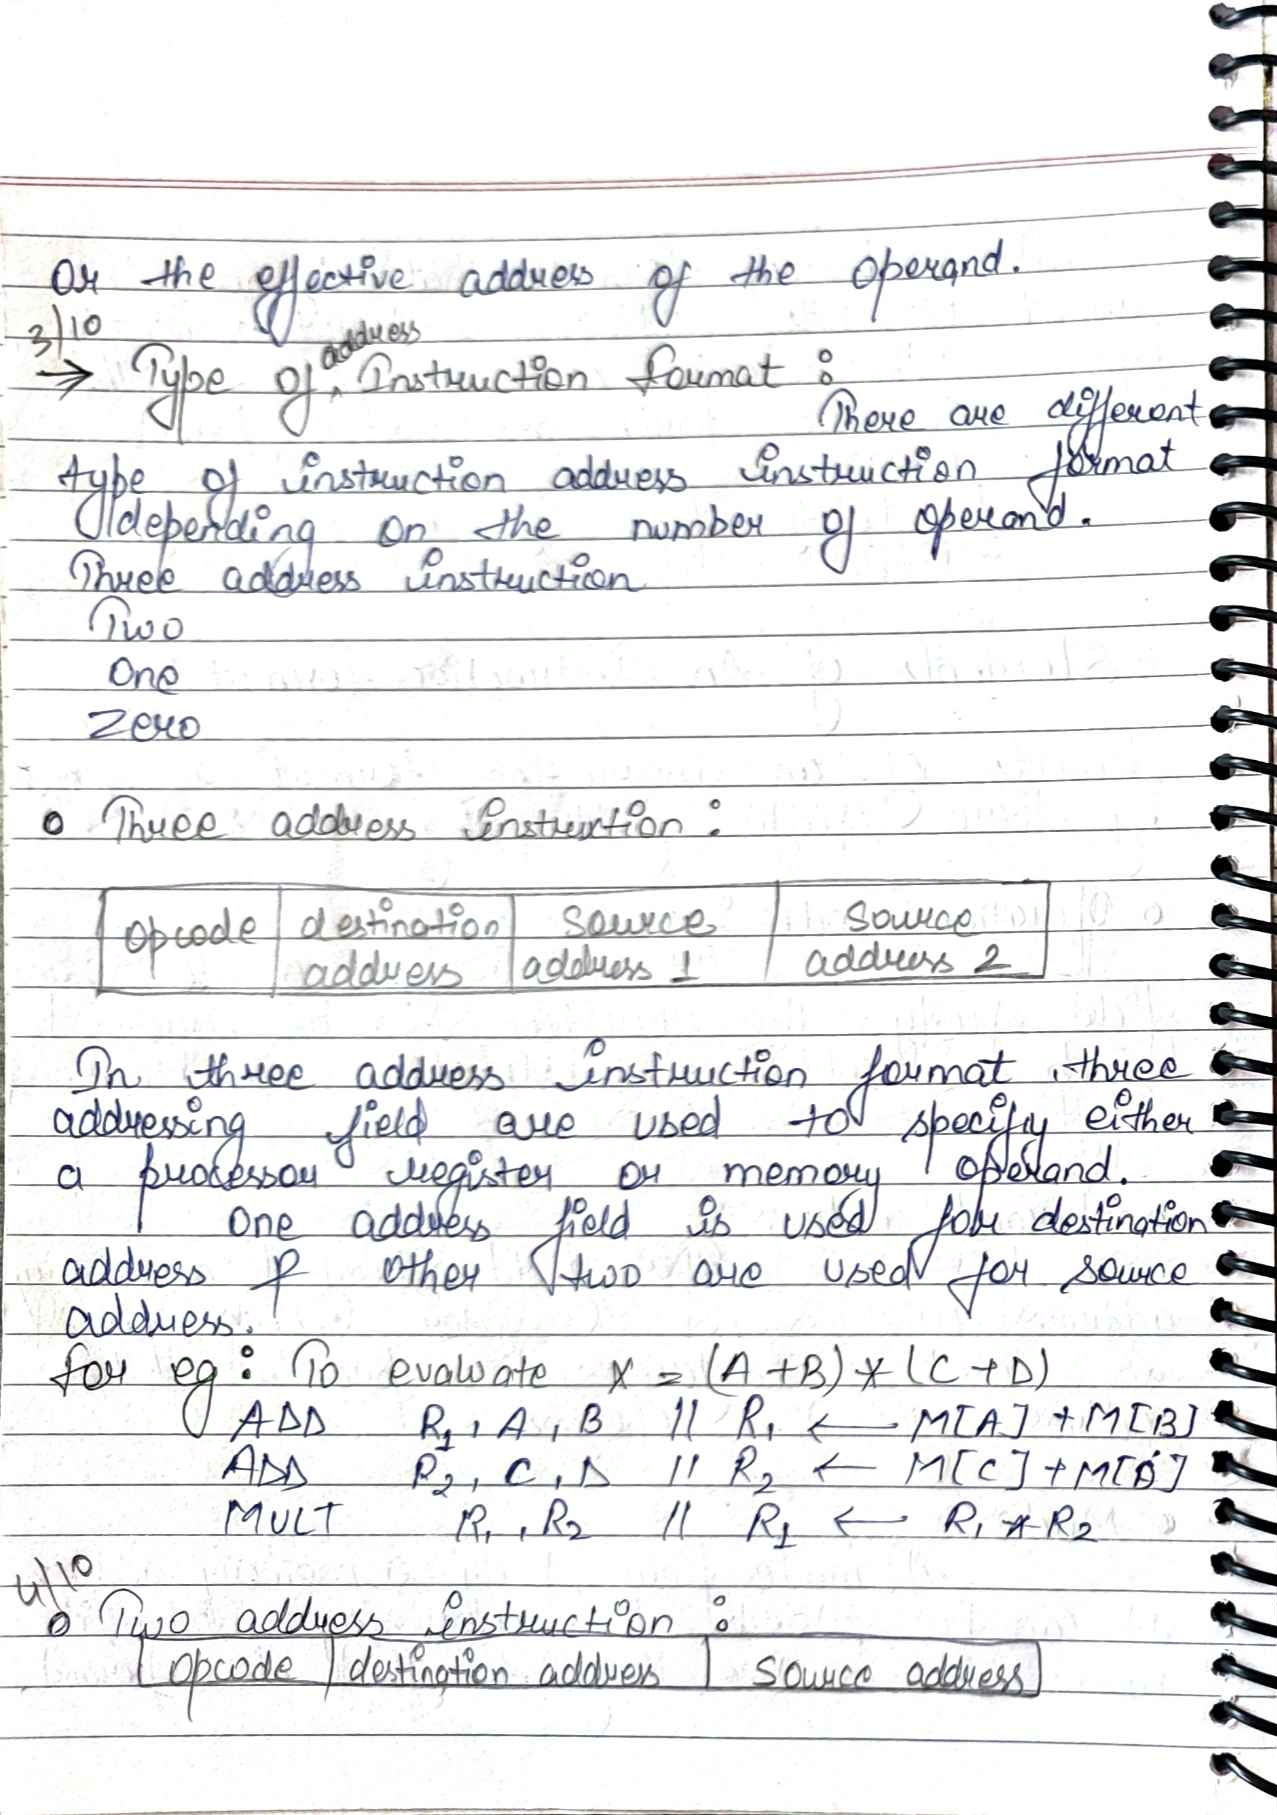 Or the effective address of the operand.
3/10
→ Type of address Instruction format :
There are different
type of instruction address instruction format
depending on the number of operand.
Three address instruction
Two
One
Zero
o Three address instruction :
opcode | destination address | Source address 1 | Source address 2
In three address instruction format, three
addressing field are used to specify either
a processor register or memory operand.
One address field is used for destination
address & other two are used for source
address.
for eg : To evaluate X = (A+B)*(C+D)
ADD R1, A, B || R1 ← M[A] + M[B]
ADD R2, C, D || R2 ← M[C] + M[D]
MULT R1, R2 || R1 ← R1 * R2
4/10
o Two address instruction :
opcode | destination address | source address